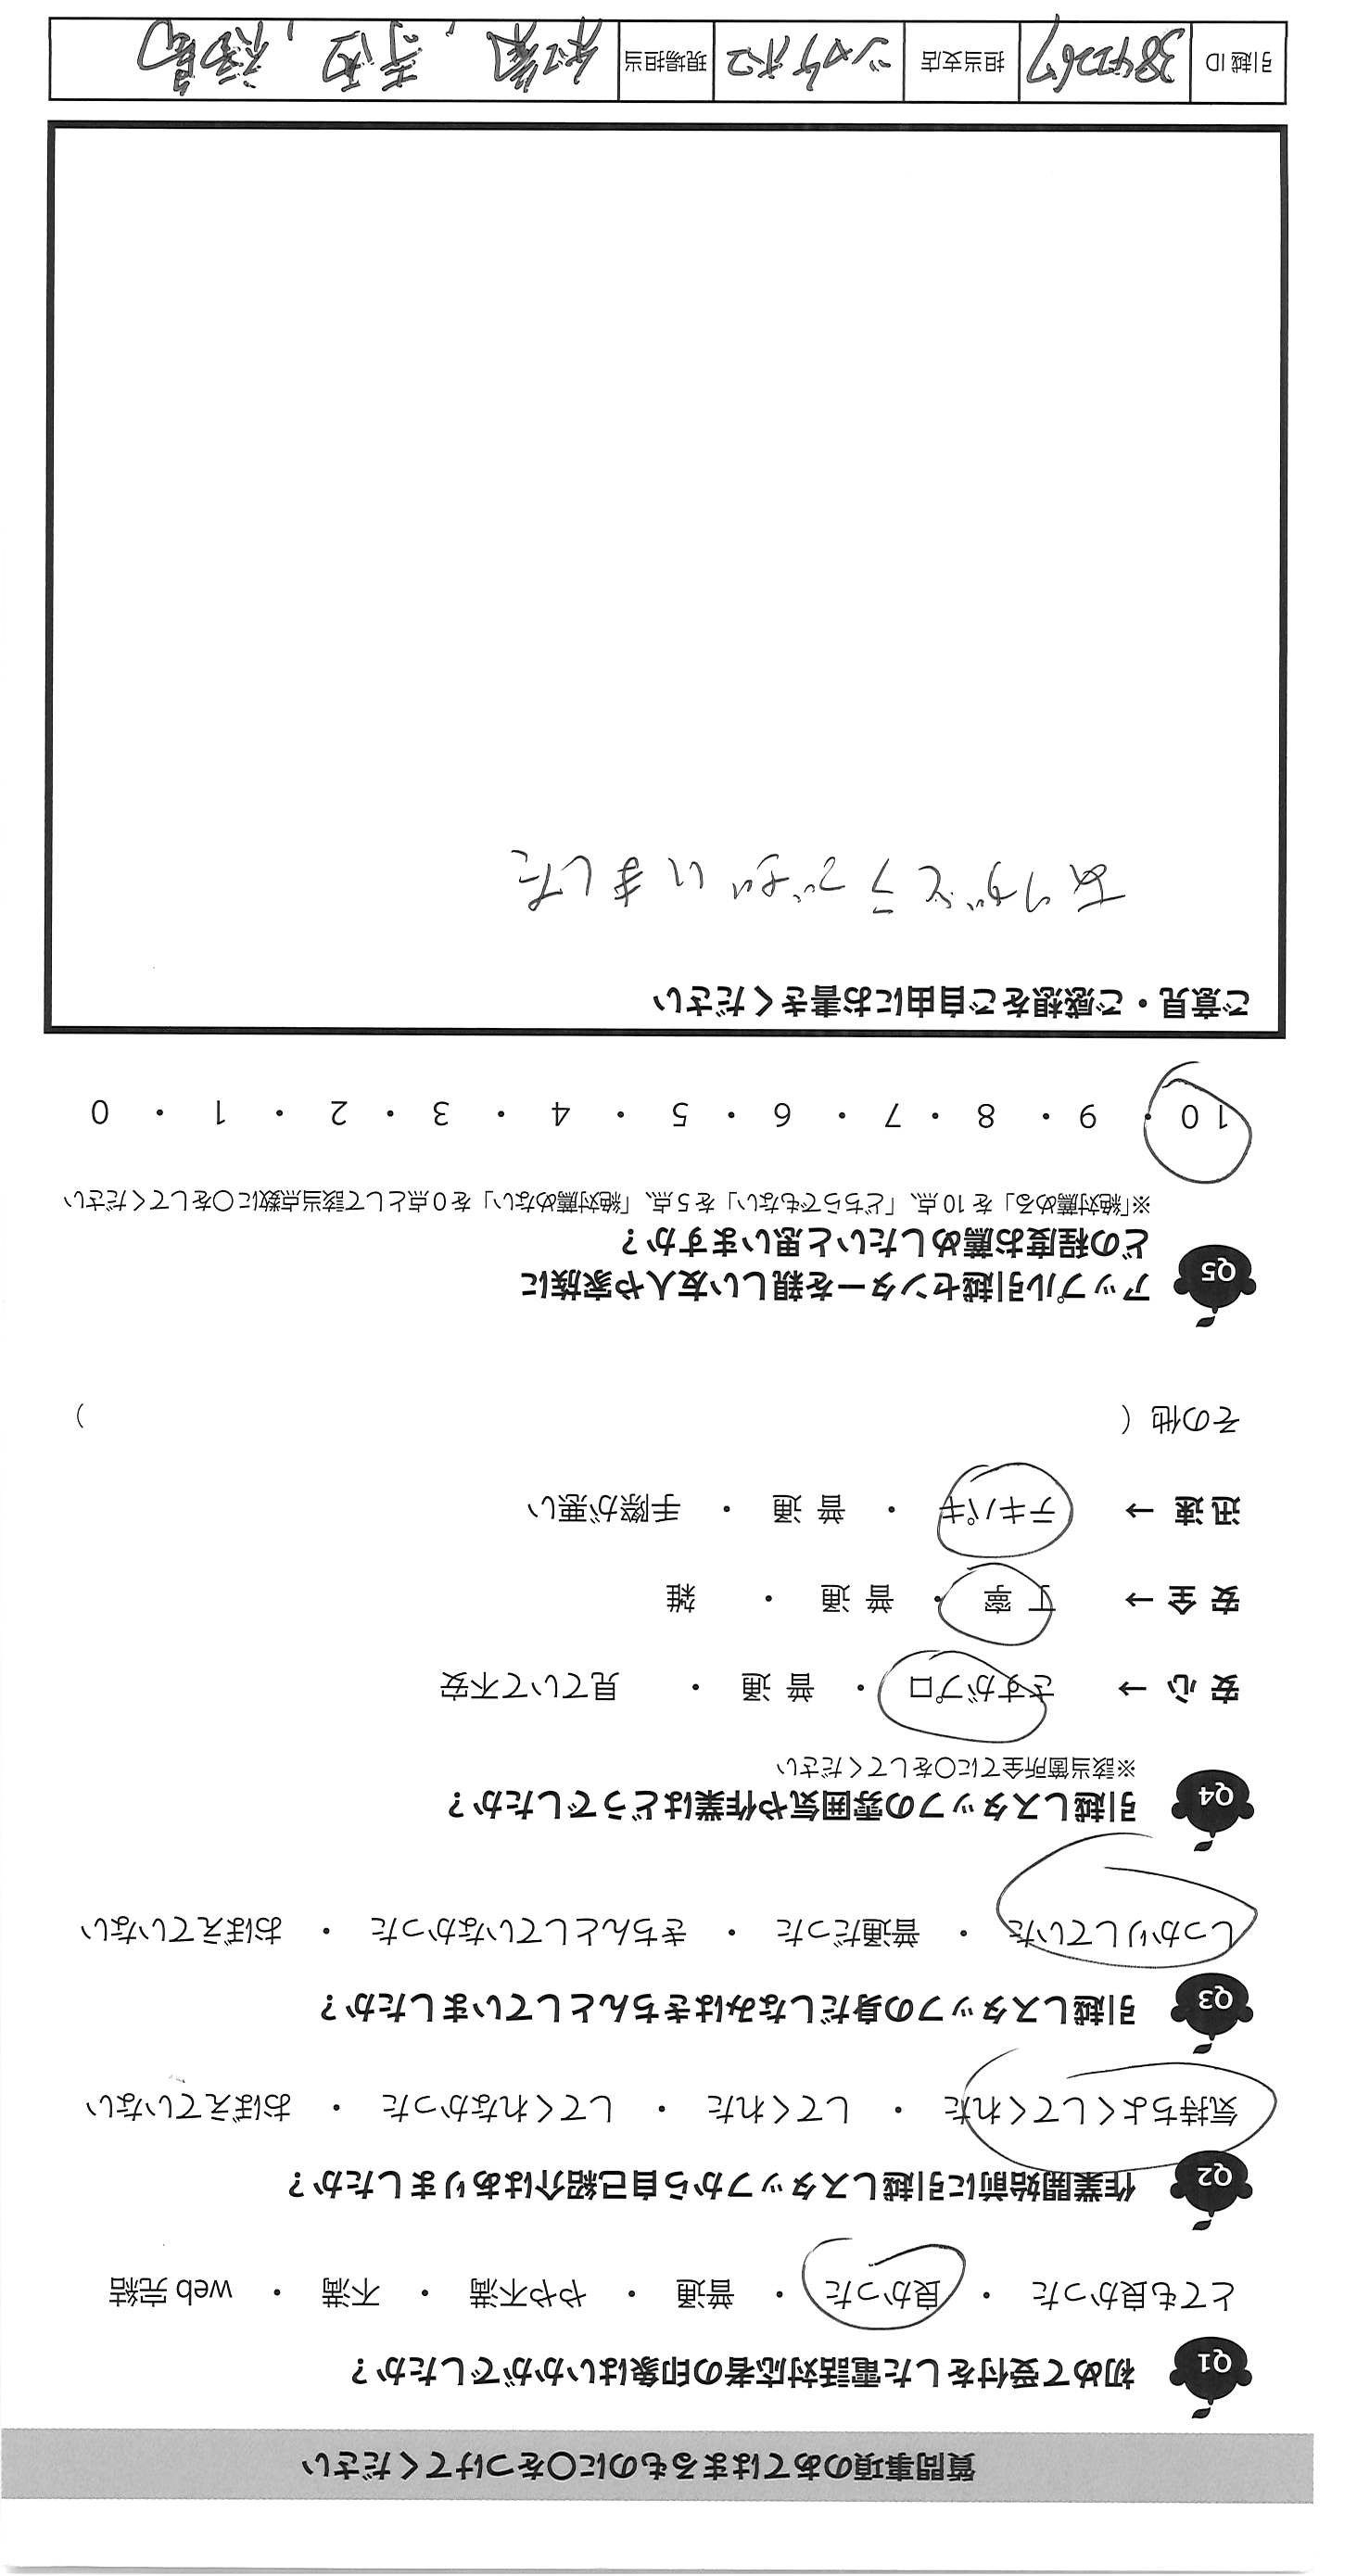 質問事項のあてはまるものに〇をつけてください
Q1 初めて受付をした電話対応者の印象はいかがでしたか？
とても良かった ・ 良かった ・ 普通 ・ やや不満 ・ 不満 ・ web 完結
Q2 作業開始前に引越しスタッフから自己紹介はありましたか？
気持ちよくしてくれた ・ してくれた ・ してくれなかった ・ おぼえていない
Q3 引越しスタッフの身だしなみはきちんとしていましたか？
しっかりしていた ・ 普通だった ・ きちんとしていなかった ・ おぼえていない
Q4 引越しスタッフの雰囲気や作業はどうでしたか？
※該当箇所全てに〇をしてください
安 心 → さすがプロ ・ 普 通 ・ 見ていて不安
安 全 → 丁 寧 ・ 普 通 ・ 雑
迅 速 → テキパキ ・ 普 通 ・ 手際が悪い
その他（ ）
Q5 アップル引越センターを親しい友人や家族に
どの程度お薦めしたいと思いますか？
※「絶対薦める」を 10 点、「どちらでもない」を 5 点、「絶対薦めない」を 0 点として該当点数に〇をしてください
10 ・ 9 ・ 8 ・ 7 ・ 6 ・ 5 ・ 4 ・ 3 ・ 2 ・ 1 ・ 0
ご意見・ご感想をご自由にお書きください
ありがとうございました
引越 ID 3842267 担当支店 現場担当